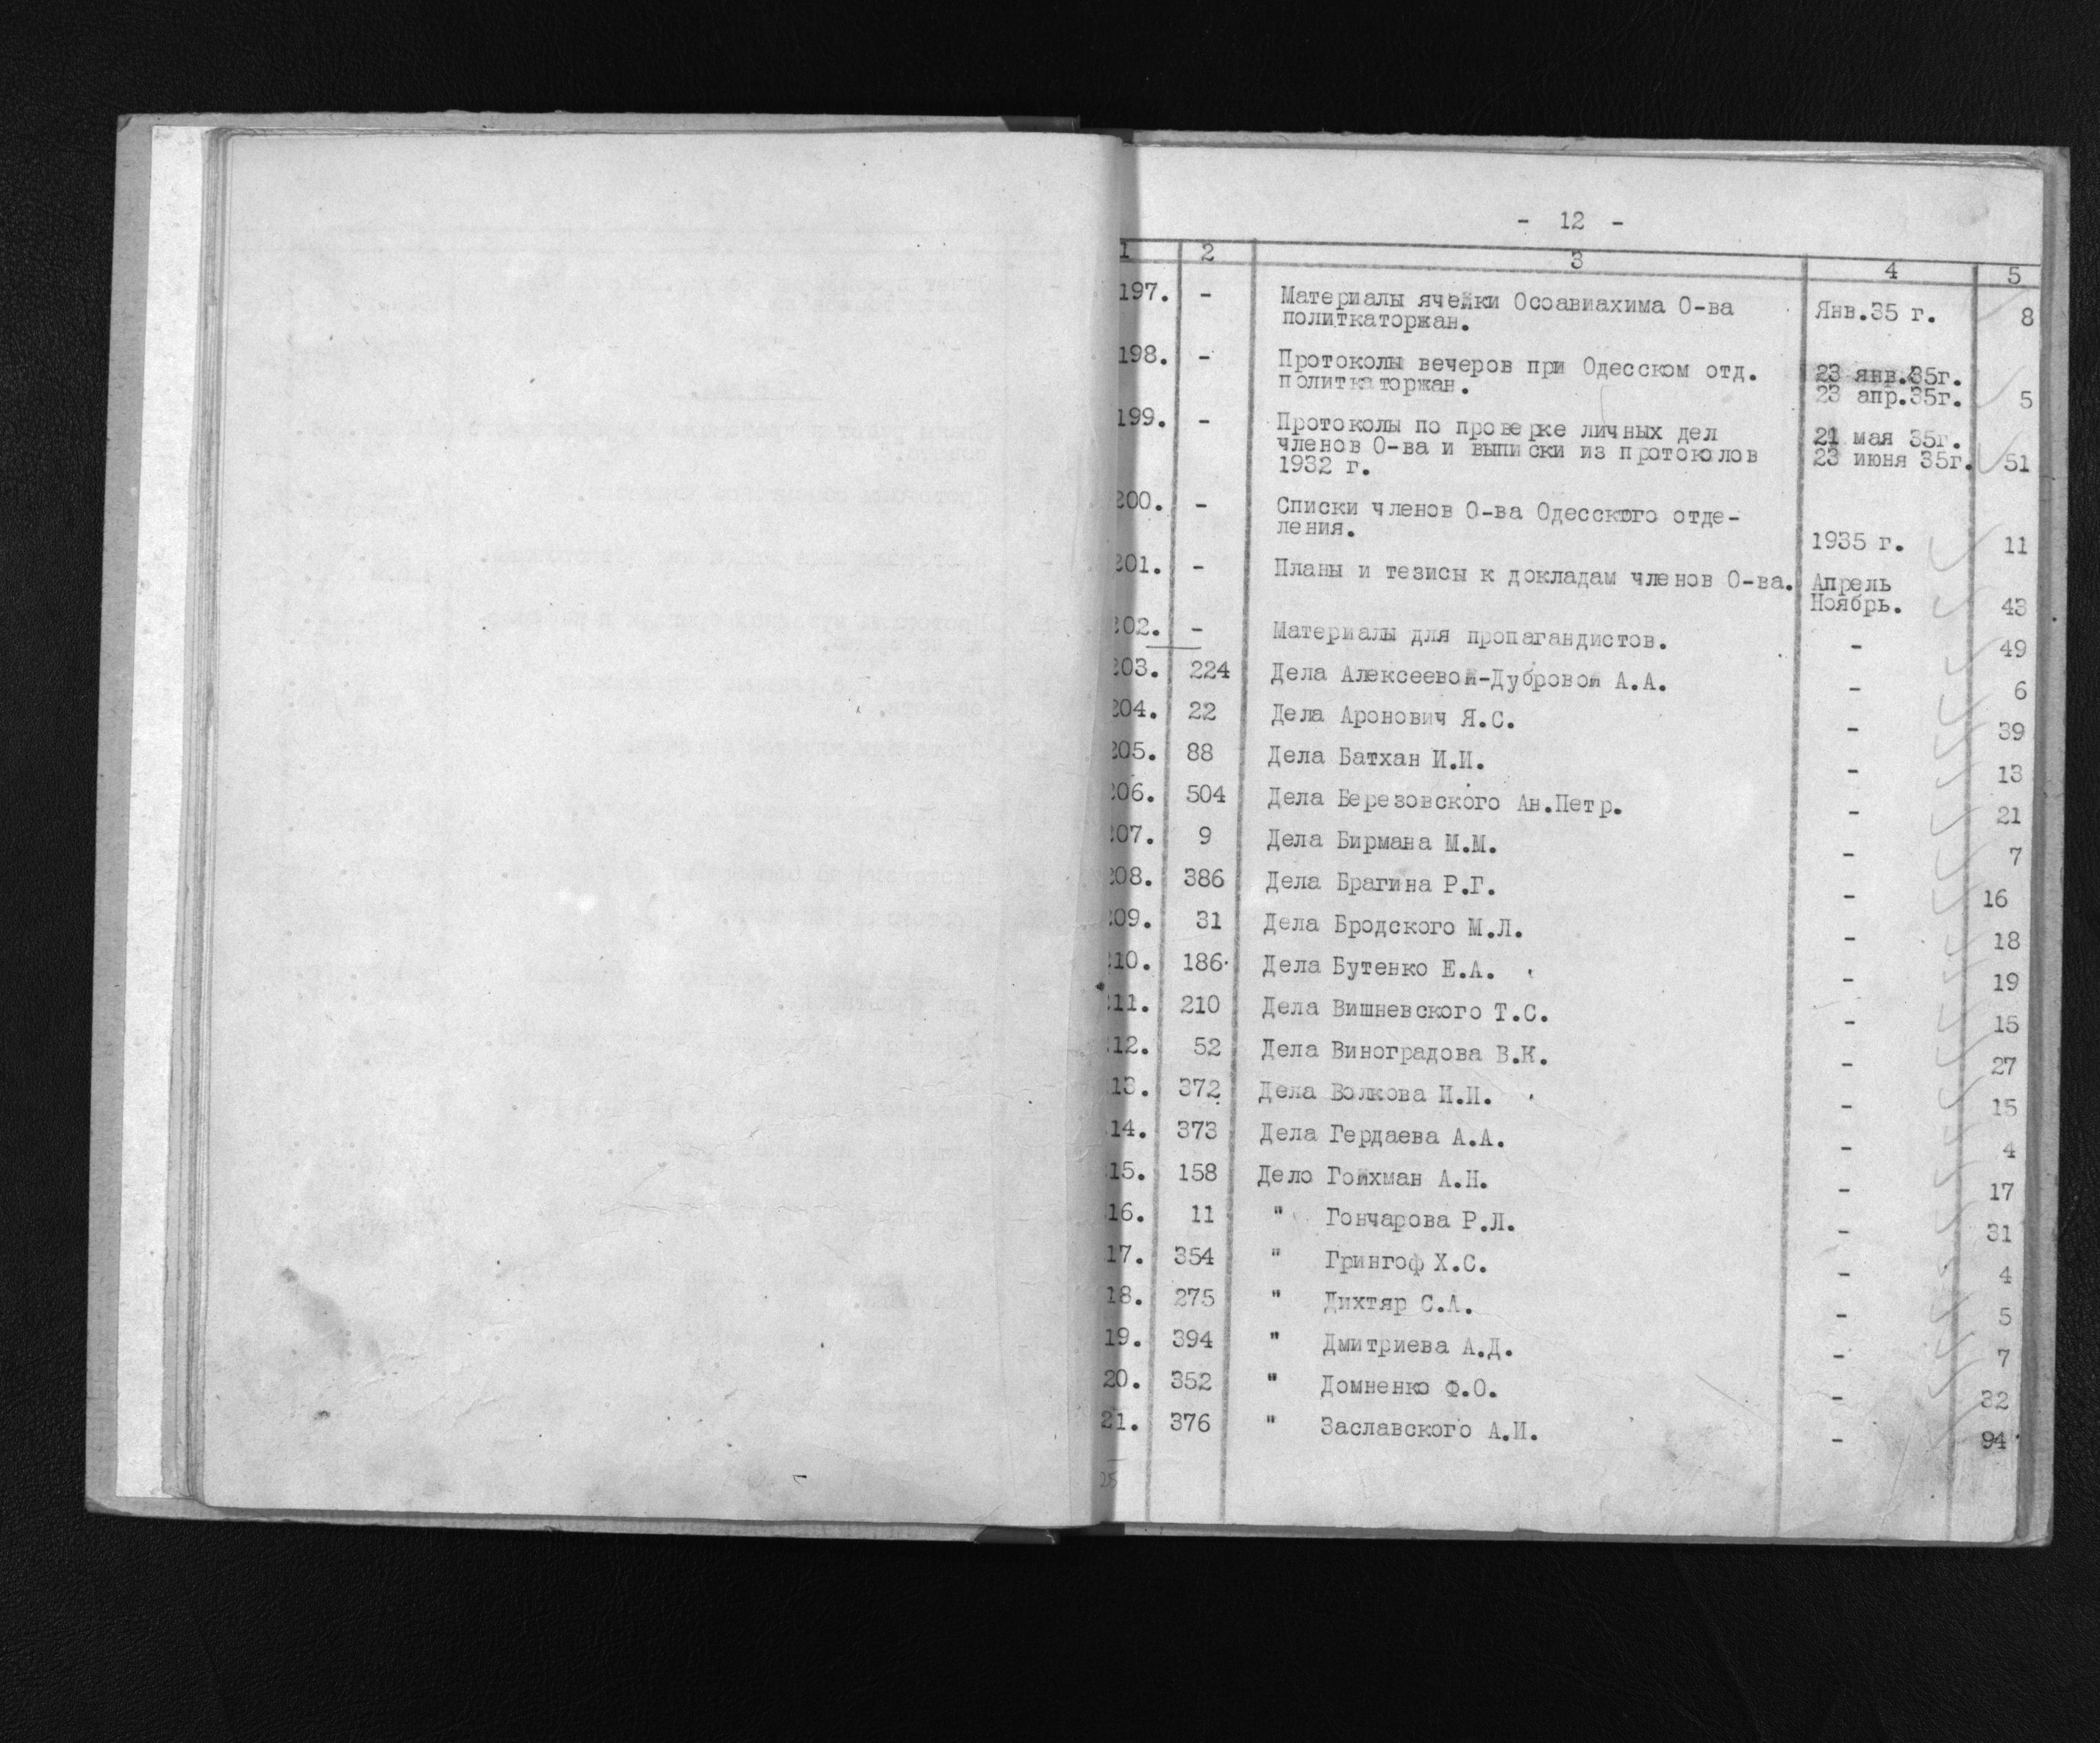 - 12 -
1 2 3 4 5
197. - Материалы ячейки Осоавиахима О-ва Янв.35 г. 8
политкаторжан.
198. - Протоколы вечеров при Одесском отд. 23 янв.35г.
политкаторжан. 23 апр.35г. 5
199. - Протоколы по проверке личных дел 21 мая 35г.
членов О-ва и выписки из протоколов 23 июня 35г. 51
1932 г.
200. - Списки членов О-ва Одесского отде-
ления. 1935 г. 11
201. - Планы и тезисы к докладам членов О-ва. Апрель
Ноябрь. 43
202. - Материалы для пропагандистов. - 49
203. 224 Дела Алексеевой-Дубровой А.А. - 6
204. 22 Дела Аронович Я.С. - 39
205. 88 Дела Батхан И.И. - 13
206. 504 Дела Березовского Ан.Петр. - 21
207. 9 Дела Бирмана М.М. - 7
208. 386 Дела Брагина Р.Г. - 16
209. 31 Дела Бродского М.Л. - 18
210. 186 Дела Бутенко Е.А. - 19
211. 210 Дела Вишневского Т.С. - 15
212. 52 Дела Виноградова В.К. - 27
13. 372 Дела Волкова И.И. - 15
14. 373 Дела Гердаева А.А. - 4
15. 158 Дело Гойхман А.Н. - 17
16. 11 " Гончарова Р.Л. - 31
17. 354 " Грингоф Х.С. - 4
18. 275 " Дихтяр С.А. - 5
19. 394 " Дмитриева А.Д. - 7
20. 352 " Домненко Ф.О. - 32
21. 376 " Заславского А.И. - 94